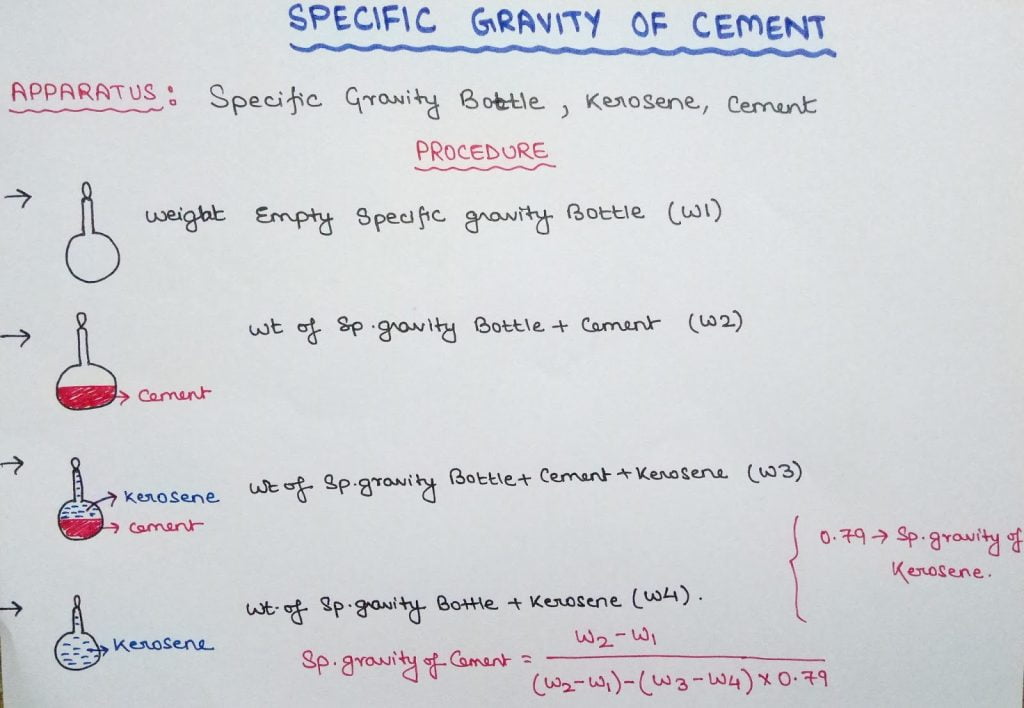 SPECIFIC GRAVITY OF CEMENT
APPARATUS: Specific Gravity Bottle, Kerosene, Cement
PROCEDURE
→ weight Empty Specific gravity Bottle (W1)
→ wt of Sp.gravity Bottle + Cement (W2)
→ Cement
→ wt of Sp.gravity Bottle + Cement + Kerosene (W3)
→ Kerosene
→ Cement
0.79 → Sp.gravity of
Kerosene.
→ wt. of Sp.gravity Bottle + Kerosene (W4).
→ Kerosene
Sp.gravity of Cement = W2-W1
(W2-W1)-(W3-W4) x 0.79